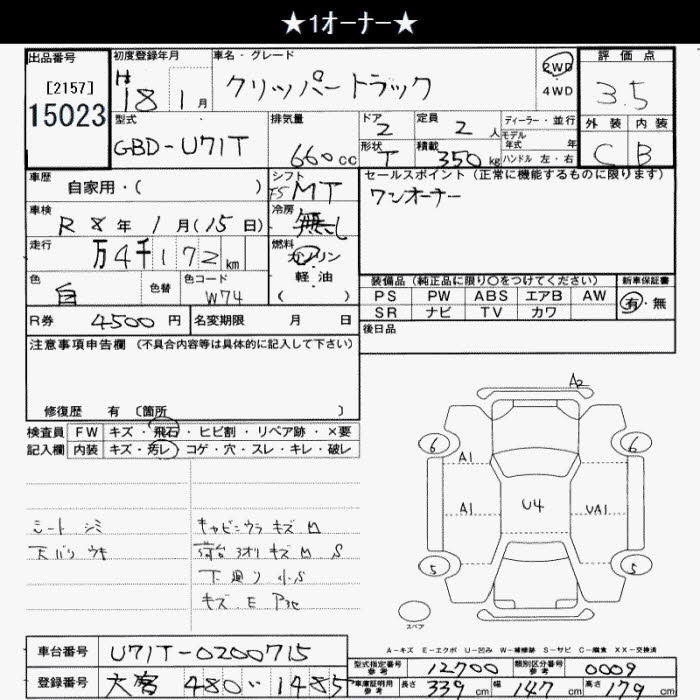 ★1オーナー★
出品番号
[2157]
15023
初度登録年月
H18 1月
車名・グレード
クリッパートラック
2WD
4WD
評価点
3.5
外装 内装
C B
型式
GBD-U71T
排気量
660cc
ドア
2
定員
2人
ディーラー・並行
モデル年式 年
形状
T
積載
350kg
ハンドル 左・右
車歴
自家用・( )
シフト
F5 MT
セールスポイント(正常に機能するものに限ります)
ワンオーナー
車検
R 8年 1月(15日)
冷房
無し
走行
万4千172km
燃料
ガソリン
・
軽油
( )
色
白
色替
色コード
W74
装備品(純正品に限り○をつけてください)
新車保証書
PS PW ABS エアB AW
SR ナビ TV カワ
有・無
R券 4500円
名変期限 月 日
後日品
注意事項申告欄(不具合内容等は具体的に記入して下さい)
修復歴 有 〔箇所 〕
検査員 FW キズ・飛石・ヒビ割・リペア跡・×要
記入欄 内装 キズ・汚レ・コゲ・穴・スレ・キレ・破レ
シート シミ
天バリ ウキ
キャビンウラ キズ M
荷台 3オリ キズ M S
下廻リ 小S
キズ E
A2
6 6
A1
A1 U4 UA1
5 5
スペア
A-キズ E-エクボ U-凹み W-補修跡 S-サビ C-腐食 XX-交換済
車台番号 U71T-0200715
登録番号 480 1485
型式指定番号 参考 12700
類別区分番号 参考 0009
車庫証明用 参考 長さ 339cm 幅 147cm 高さ 179cm